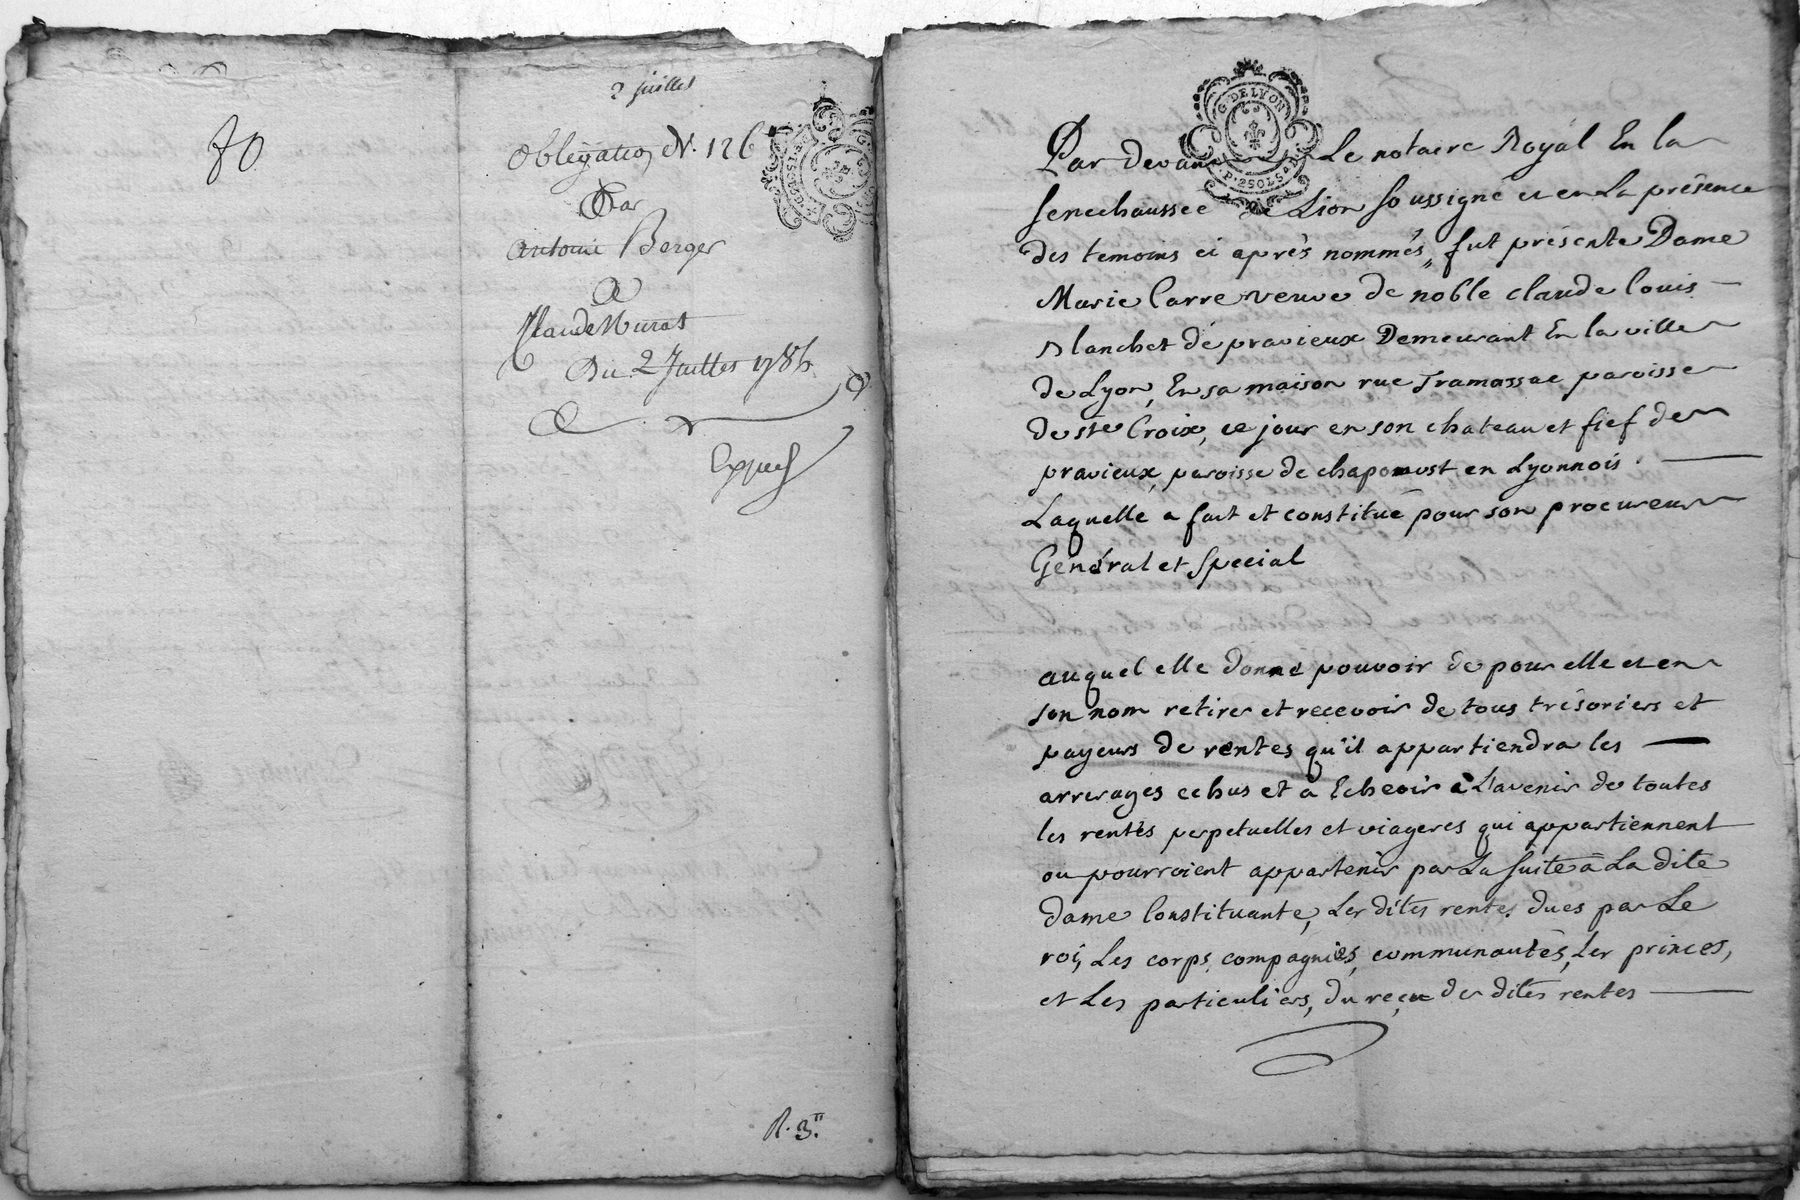 80
2 juillet
Obligation N. 126
Par
antoine Berger
A
Claude Murat
Du 2 Juillet 1786
Exped
R. 3.
G. DE LYON
P. 2 SOLS
Par devant Le notaire Royal En la
senechaussee de Lion soussigné et en La présence
des temoins ci après nommés, fut présente Dame
Marie Carre veuve de noble claude louis
Blanchet de pravieux Demeurant En la ville
de Lyon, En sa maison rue Tramassac paroisse
de ste Croix, ce jour en son chateau et fief de
pravieux, paroisse de chaponost en Lyonnois.
Laquelle a fait et constitué pour son procureur
Général et Special
auquel elle donne pouvoir de pour elle et en
son nom retirer et recevoir de tous trésoriers et
payeurs de rentes qu'il appartiendra les
arrerages echus et a Echeoir à L'avenir de toutes
les rentes perpetuelles et viageres qui appartiennent
ou pourroient appartenir par La suite à La dite
dame Constituante, Les dites rentes dues par Le
roi, Les corps, compagnies, communautés, Les princes,
et Les particuliers, du reçu des dites rentes